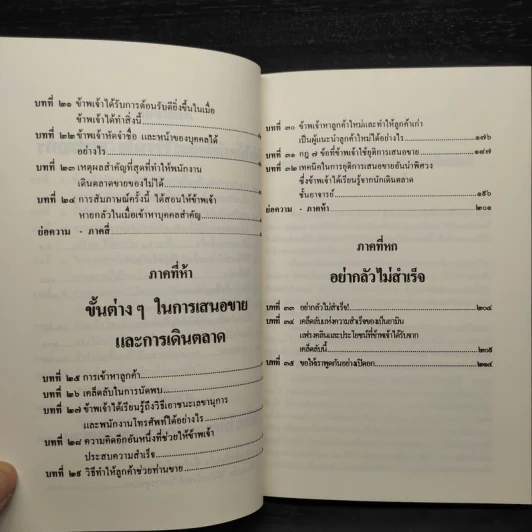 บทที่ ๒๑ ข้าพเจ้าได้รับการต้อนรับดียิ่งขึ้นในเมื่อ
ข้าพเจ้าได้ทำสิ่งนี้
บทที่ ๒๒ ข้าพเจ้าหัดจำชื่อ และหน้าของบุคคลได้
อย่างไร
บทที่ ๒๓ เหตุผลสำคัญที่สุดที่ทำให้พนักงาน
เดินตลาดขายของไม่ได้
บทที่ ๒๔ การสัมภาษณ์ครั้งนี้ ได้สอนให้ข้าพเจ้า
หายกลัวในเมื่อเข้าหาบุคคลสำคัญ
ย่อความ - ภาคสี่
ภาคที่ห้า
ขั้นต่าง ๆ ในการเสนอขาย
และการเดินตลาด
บทที่ ๒๕ การเข้าหาลูกค้า
บทที่ ๒๖ เคล็ดลับในการนัดพบ
บทที่ ๒๗ ข้าพเจ้าได้เรียนรู้ถึงวิธีเอาชนะเลขานุการ
และพนักงานโทรศัพท์ได้อย่างไร
บทที่ ๒๘ ความคิดอีกอันหนึ่งที่ช่วยให้ข้าพเจ้า
ประสบความสำเร็จ
บทที่ ๒๙ วิธีทำให้ลูกค้าช่วยท่านขาย
บทที่ ๓๐ ข้าพเจ้าหาลูกค้าใหม่และทำให้ลูกค้าเก่า
เป็นผู้แนะนำลูกค้าใหม่ได้อย่างไร ๑๗๖
บทที่ ๓๑ กฎ ๗ ข้อที่ข้าพเจ้าใช้ยุติการเสนอขาย ๑๘๗
บทที่ ๓๒ เทคนิคในการยุติการเสนอขายอันน่าพิศวง
ซึ่งข้าพเจ้าได้เรียนรู้จากนักเดินตลาด
ชั้นอาจารย์ ๑๙๖
ย่อความ - ภาคห้า ๒๐๑
ภาคที่หก
อย่ากลัวไม่สำเร็จ
บทที่ ๓๓ อย่ากลัวไม่สำเร็จ! ๒๐๔
บทที่ ๓๔ เคล็ดลับแห่งความสำเร็จของเบ็นยามิน
แฟรงคลินและประโยชน์ที่ข้าพเจ้าได้รับจาก
เคล็ดลับนี้ ๒๐๕
บทที่ ๓๕ ขอให้เราพูดกันอย่างเปิดอก ๒๑๔